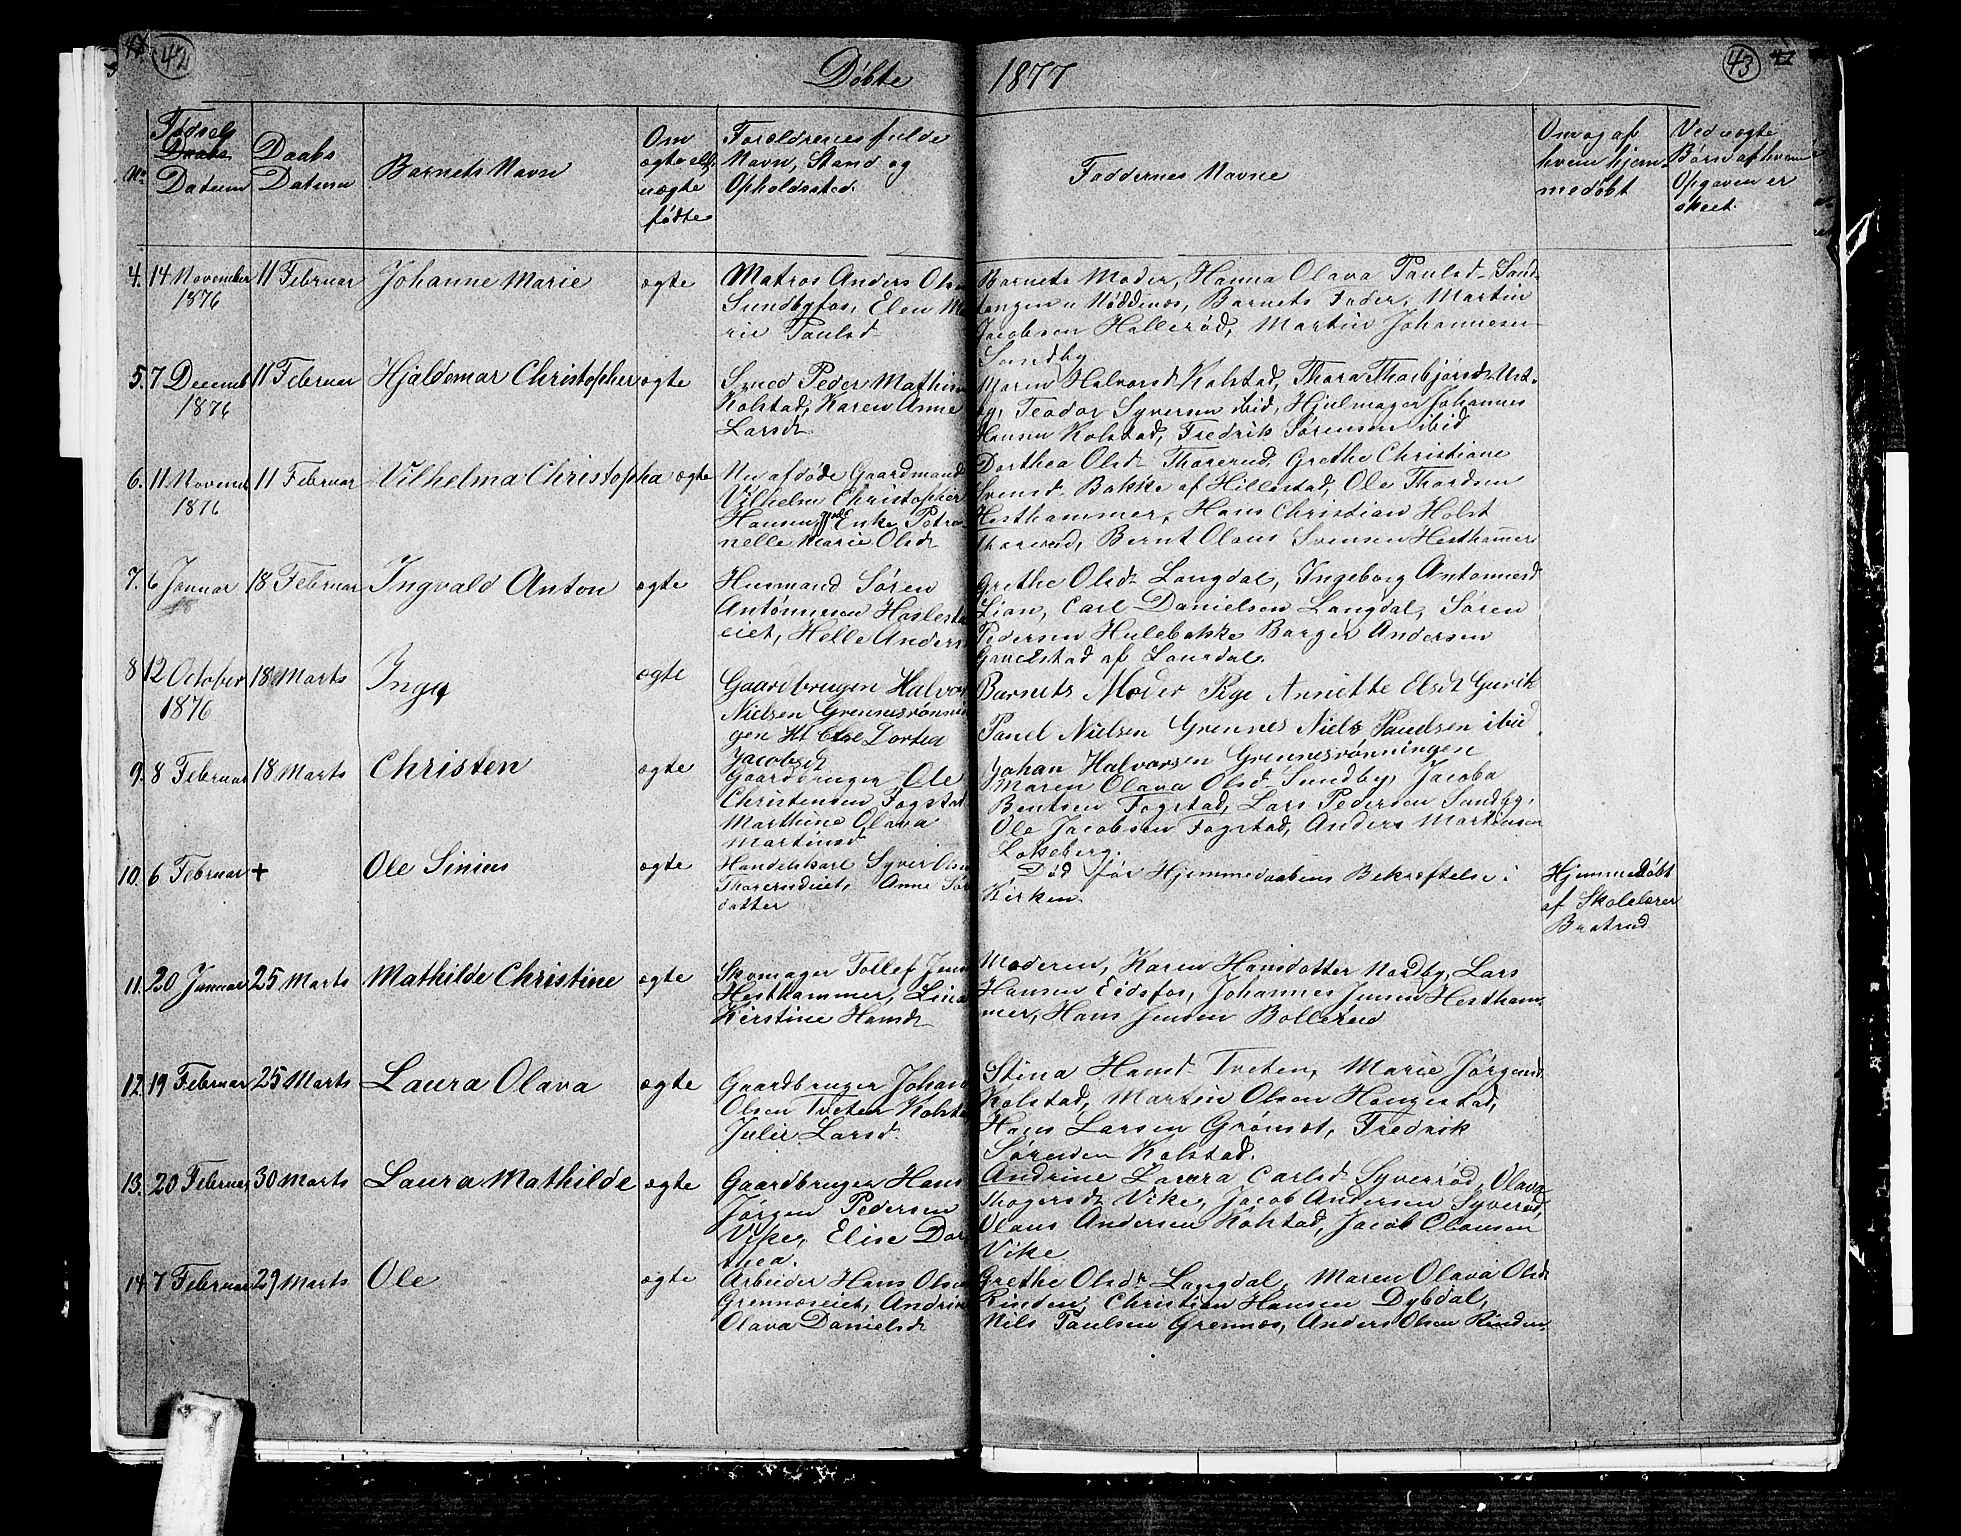 42
Døbte 1877
43
No
Fødsels
Daabs
Datum
Daabs
Datum
Barnets Navn
Om
ægte ell.
uægte
fødte
Forældrenes fulde
Navn, Stand og
Opholdssted.
Faddernes Navne
Om og af
hvem hjem-
medøbt
Ved uægte
Børn af hvem
Opgaven er
skeet.
4. 14 November
1876
11 Februar
Johanne Marie
ægte
Matros Anders Olsen
Sundbyfos, Elen Ma
rie Paulsd
Barnets Moder, Hanna Olava Paulsd Sand-
tangen, Barnets Fader, Martin
Jacobsen Hallerød, Martin Johannesen
Sundby
5. 7 Decemb
1876
11 Februar
Hjaldemar Christopher
ægte
Smed Peder Mathisen
Kolstad, Karen Anne
Larsd
Maren Halvorsd Kolstad, Thara Thorbjørnsd
Teodor Syversen ibid, Hjulmager Johannes
Hansen Kolstad, Fredrik Sørensen ibid
6. 11 Novemb
1876
11 Februar
Vilhelma Christopha
ægte
Nu afdøde Gaardmand
Vilhelm Christopher
Hansen, Enke Petro
nelle Marie Olsd
Dorthea Olsd Thorerud, Grethe Christiane
Svensd Bakke af Hillestad, Ole Thordsen
Hesthammer, Hans Christian Holst
Thorerud, Bernt Olaus Svensen Hesthammer
7. 6 Januar
18 Februar
Ingvald Anton
ægte
Husmand Søren
Antonnesen Haslestad
eiet, Helle Anders
Grethe Olsd Langdal, Ingeborg Antonnesd
Lian, Carl Danielsen Langdal, Søren
Pedersen Hulebakke Borger Andersen
af Langdal.
8 12 October
1876
18 Marts
Inga
ægte
Gaardbrugen Halvor
Nielsen Grennesrønnin
gen Else Dortea
Jacobsd
Barnets Moder Pige Annette Elsdt
Paul Nielsen Grennes Niels Paulsen ibid
Johan Halvorsen Grennesrønningen
9. 8 Februar
18 Marts
Christen
ægte
Gaardbruger Ole
Christensen Fogstad
Marthine Olava
Martinsd
Maren Olava Olsd Sundby, Jacoba
Bentsen Fogstad, Lars Pedersen Sundby,
Ole Jacobsen Fogstad, Anders Martinsen
Løkeberg.
10. 6 Februar
+
Ole Sinius
ægte
Handelskarl Syver Olsen
Thorerudeiet, Anne Sør
datter
Død før Hjemmedaabens Bekræftelse i
Kirken
Hjemmedøbt
af Skolelærer
Bratrud
11. 20 Januar
25 Marts
Mathilde Christine
ægte
Skomager Tollef Jens
Hesthammer, Lina
Kirstine Hansd
Moderen, Karen Hansdatter Nordby, Lars
Hansen Eidsfos, Johannes Jensen Hestham
mer, Hans Jensen Bollerud
12. 19 Februar
25 Marts
Laura Olava
ægte
Gaardbruger Johan
Olsen Tveten Kolsta
Julie Larsd.
Stina Hansd Tveten, Marie Jørgensd
Kolstad, Martin Olsen Haugestad,
Hans Larsen Grønset, Fredrik
Sørensen Kolstad.
13. 20 Februar
30 Marts
Laura Mathilde
ægte
Gaardbruger Hans
Jørgen Pedersen
Vike, Elise Dor
thea.
Andrine Laura Carlsd Syverød, Olava
Thogersd Vike, Jacob Andersen Syverød,
Olaus Andersen Kolstad, Jacob Olausen
Vike
14. 7 Februar
29 Marts
Ole
ægte
Arbeider Hans Olsen
Grennæseiet, Andrin
Olava Danielsd
Grethe Olsdr Langdal, Maren Olava Olsd
Rinden, Christian Hansen Dybdal,
Nils Paulsen Grennæs, Anders Olsen Rinden